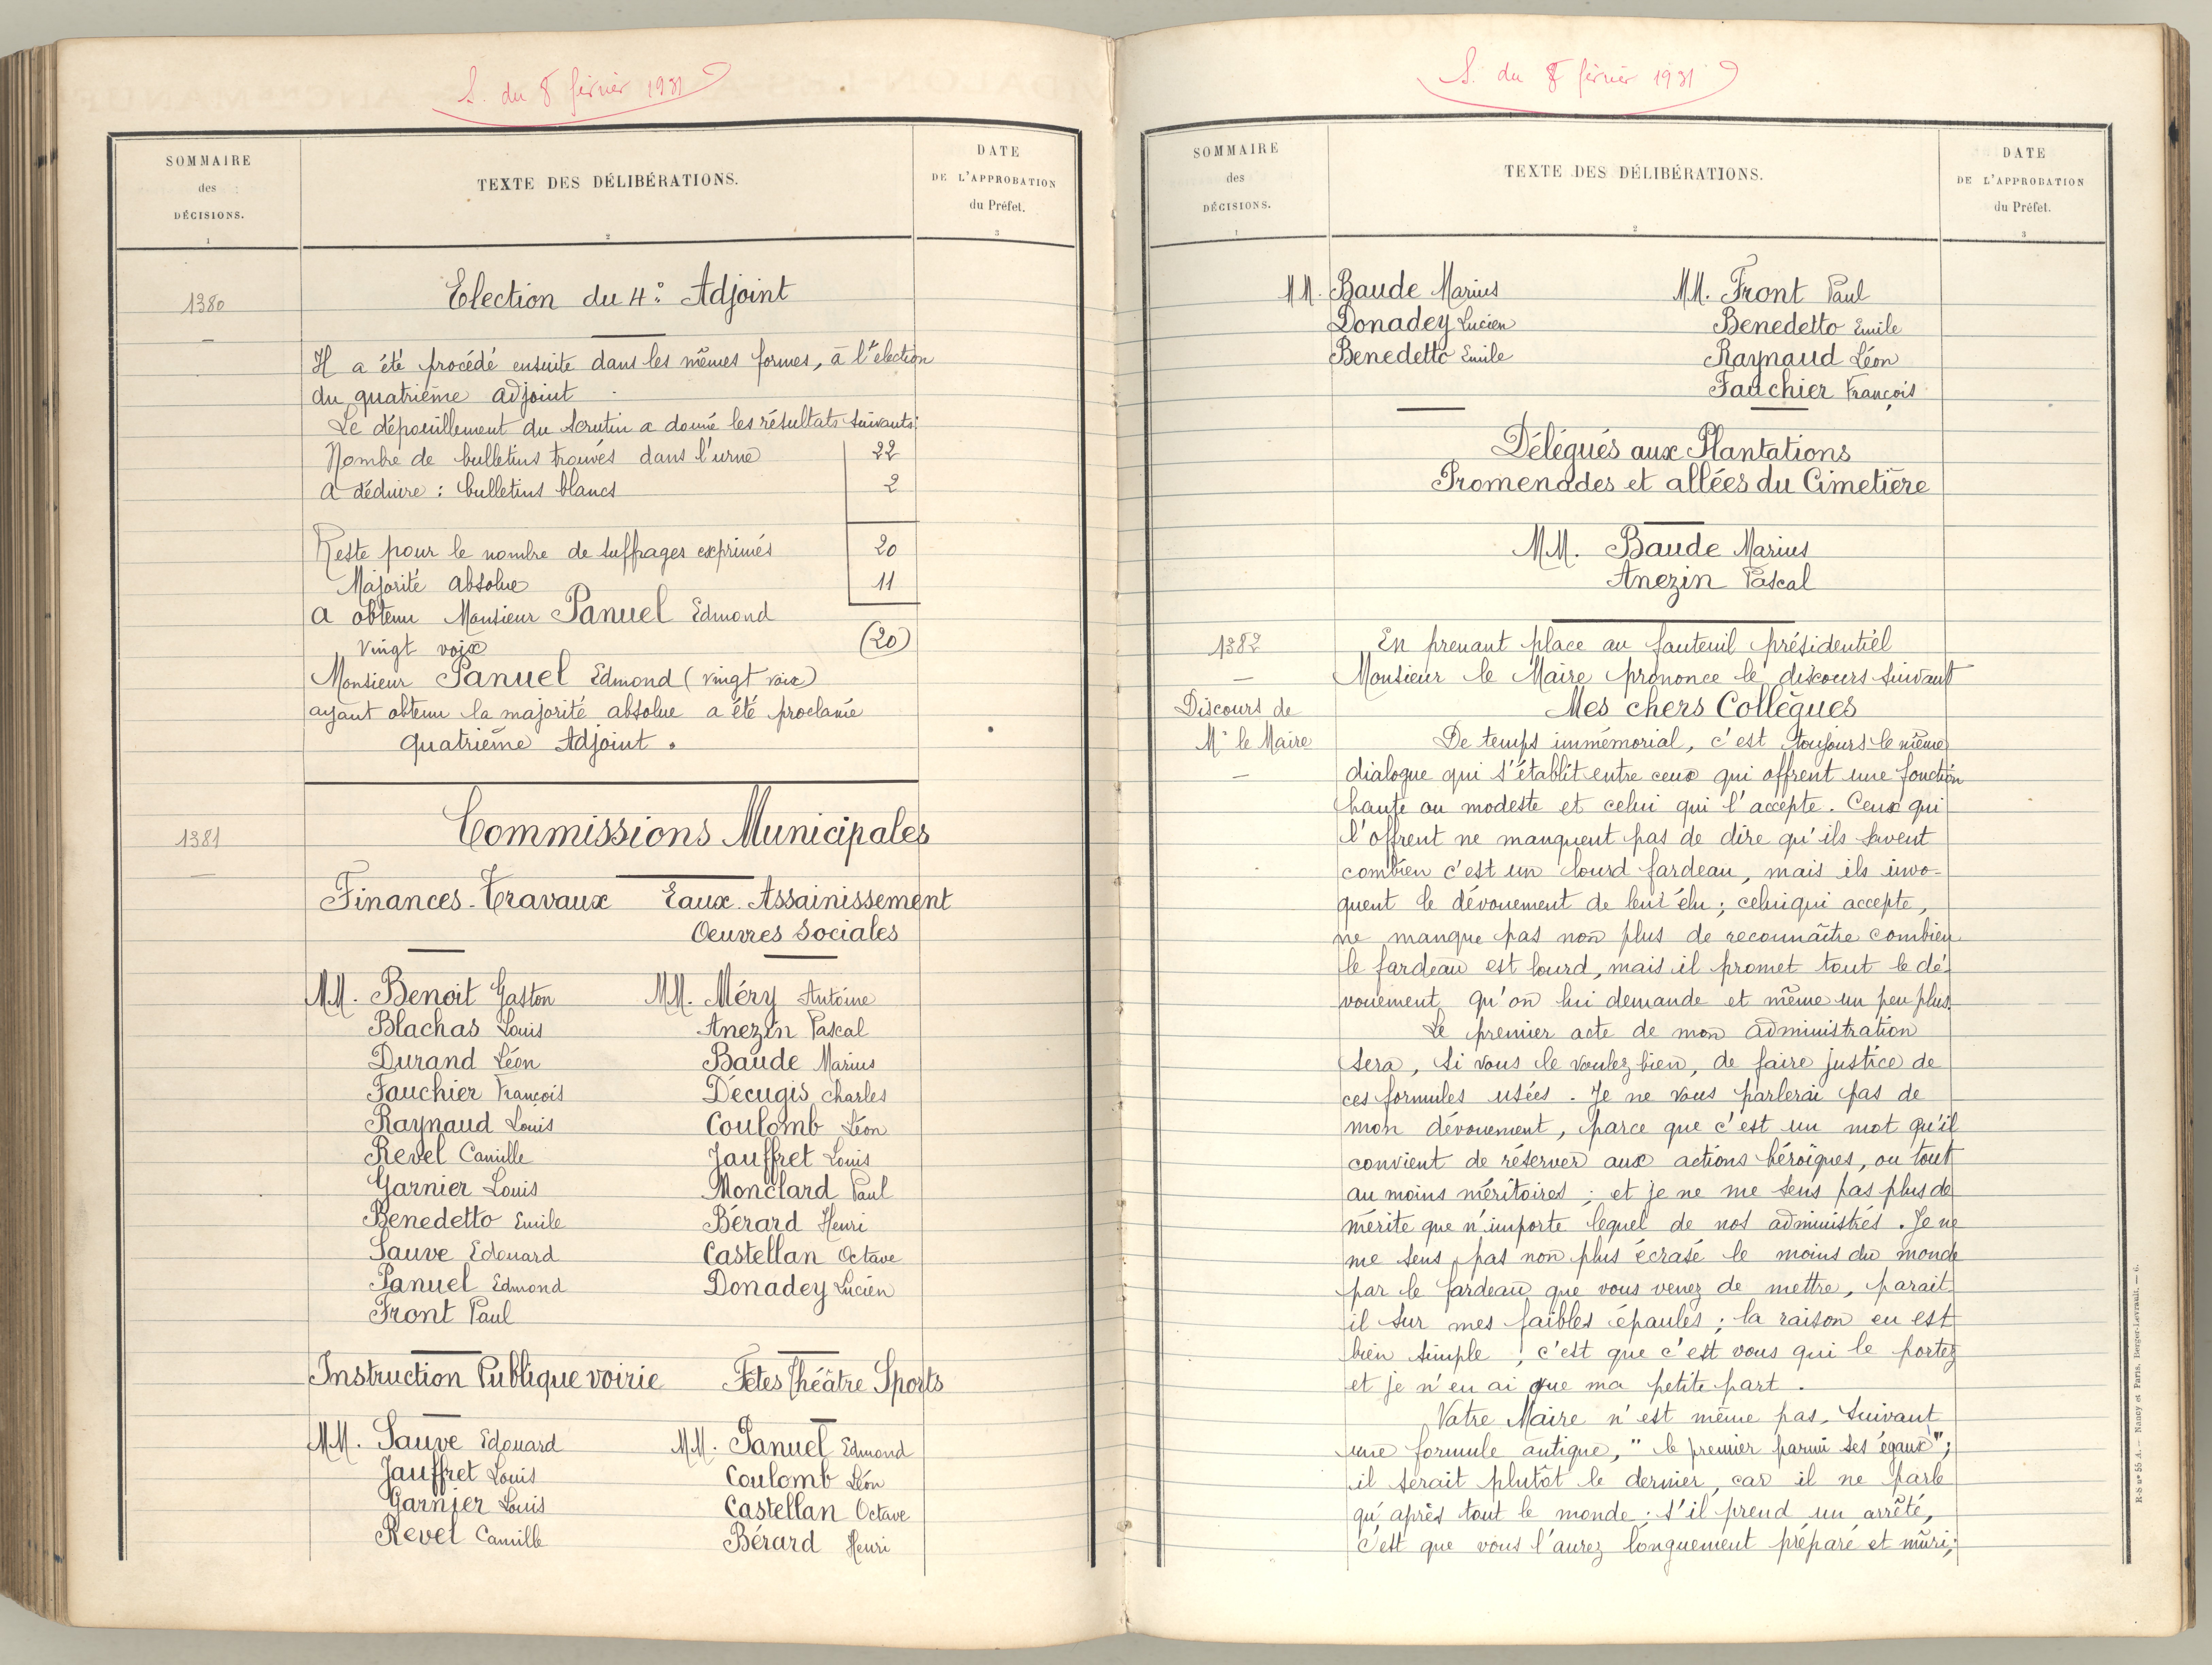 S. du 8 février 1931
SOMMAIRE
des
DÉCISIONS.
1
TEXTE DES DÉLIBÉRATIONS.
2
DATE
DE L'APPROBATION
du Préfet.
3
1380
Election du 4e Adjoint
Il a été procédé ensuite dans les mêmes formes, à l'élection
du quatrième adjoint
Le dépouillement du scrutin a donné les résultats suivants:
Nombre de bulletins trouvés dans l'urne 22
A déduire : bulletins blancs 2
Reste pour le nombre de suffrages exprimés 20
Majorité absolue 11
a obtenu Monsieur Panuel Edmond
Vingt voix (20)
Monsieur Panuel Edmond (vingt voix)
ayant obtenu la majorité absolue a été proclamé
quatrième Adjoint.
1381
Commissions Municipales
Finances-Travaux Eaux. Assainissement
Oeuvres Sociales
MM. Benoit Gaston MM. Méry Antoine
Blachas Louis Anezin Pascal
Durand Léon Baude Marius
Fauchier François Décugis Charles
Raynaud Louis Coulomb Léon
Revel Camille Jauffret Louis
Garnier Louis Monclard Paul
Benedetto Emile Bérard Henri
Sauve Edouard Castellan Octave
Panuel Edmond Donadey Lucien
Front Paul
Instruction Publique voirie Fêtes Théâtre Sports
MM. Sauve Edouard MM. Panuel Edmond
Jauffret Louis Coulomb Léon
Garnier Louis Castellan Octave
Revel Camille Bérard Henri
S. du 8 février 1931
SOMMAIRE
des
DÉCISIONS.
1
TEXTE DES DÉLIBÉRATIONS.
2
DATE
DE L'APPROBATION
du Préfet.
3
MM. Baude Marius MM. Front Paul
Donadey Lucien Benedetto Emile
Benedetto Emile Raynaud Léon
Fauchier François
Délégués aux Plantations
Promenades et allées du Cimetière
MM. Baude Marius
Anezin Pascal
1382
Discours de
Mr le Maire
En prenant place au fauteuil présidentiel
Monsieur le Maire prononce le discours suivant
Mes chers Collègues
De temps immémorial, c'est toujours le même
dialogue qui s'établit entre ceux qui offrent une fonction
haute ou modeste et celui qui l'accepte. Ceux qui
l'offrent ne manquent pas de dire qu'ils savent
combien c'est un lourd fardeau, mais ils invo-
quent le dévouement de leur élu; celui qui accepte,
ne manque pas non plus de reconnaître combien
le fardeau est lourd, mais il promet tout le dé-
vouement qu'on lui demande et même un peu plus.
Le premier acte de mon administration
sera, si vous le voulez bien, de faire justice de
ces formules usées. Je ne vous parlerai pas de
mon dévouement, parce que c'est un mot qu'il
convient de réserver aux actions héroïques, ou tout
au moins méritoires; et je ne me sens pas plus de
mérite que n'importe lequel de nos administrés. Je ne
me sens pas non plus écrasé le moins du monde
par le fardeau que vous venez de mettre, parait-
il sur mes faibles épaules; la raison en est
bien simple ; c'est que c'est vous qui le portez
et je n'en ai que ma petite part.
Votre Maire n'est même pas, suivant
une formule antique, "le premier parmi ses égaux";
il serait plutôt le dernier, car il ne parle
qu'après tout le monde; s'il prend un arrêté,
c'est que vous l'aurez longuement préparé et mûri;
R-S n° 55 A. — Nancy et Paris, Berger-Levrault. — 6.